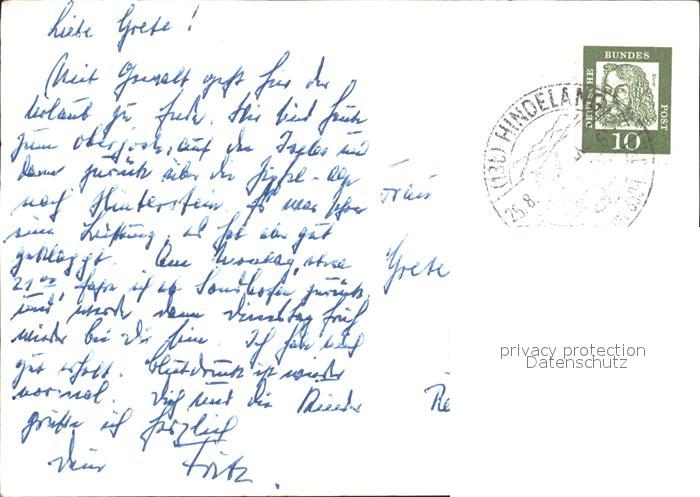 Liebe Grete!
Mit Gewalt geht hier der
Urlaub zu Ende. Wir sind heute
zum Oberjoch, auf den Iseler und
dann zurück über die Zipfel-Alp
nach Hinterstein. Es war schon
eine Leistung, es hat aber gut
geklappt. Am Montag, etwa
21 00, fahre ich ab Sonthofen zurück
und werde dann Dienstag früh
wieder bei Dir sein. Ich habe mich
gut erholt. Blutdruck ist wieder
normal. Dich und die Kinder
grüße ich herzlich
Dein Fritz.
Frau
Grete
Re
DEUTSCHE
BUNDES
POST
Dürer
10
HINDELANG
25.8.
privacy protection
Datenschutz